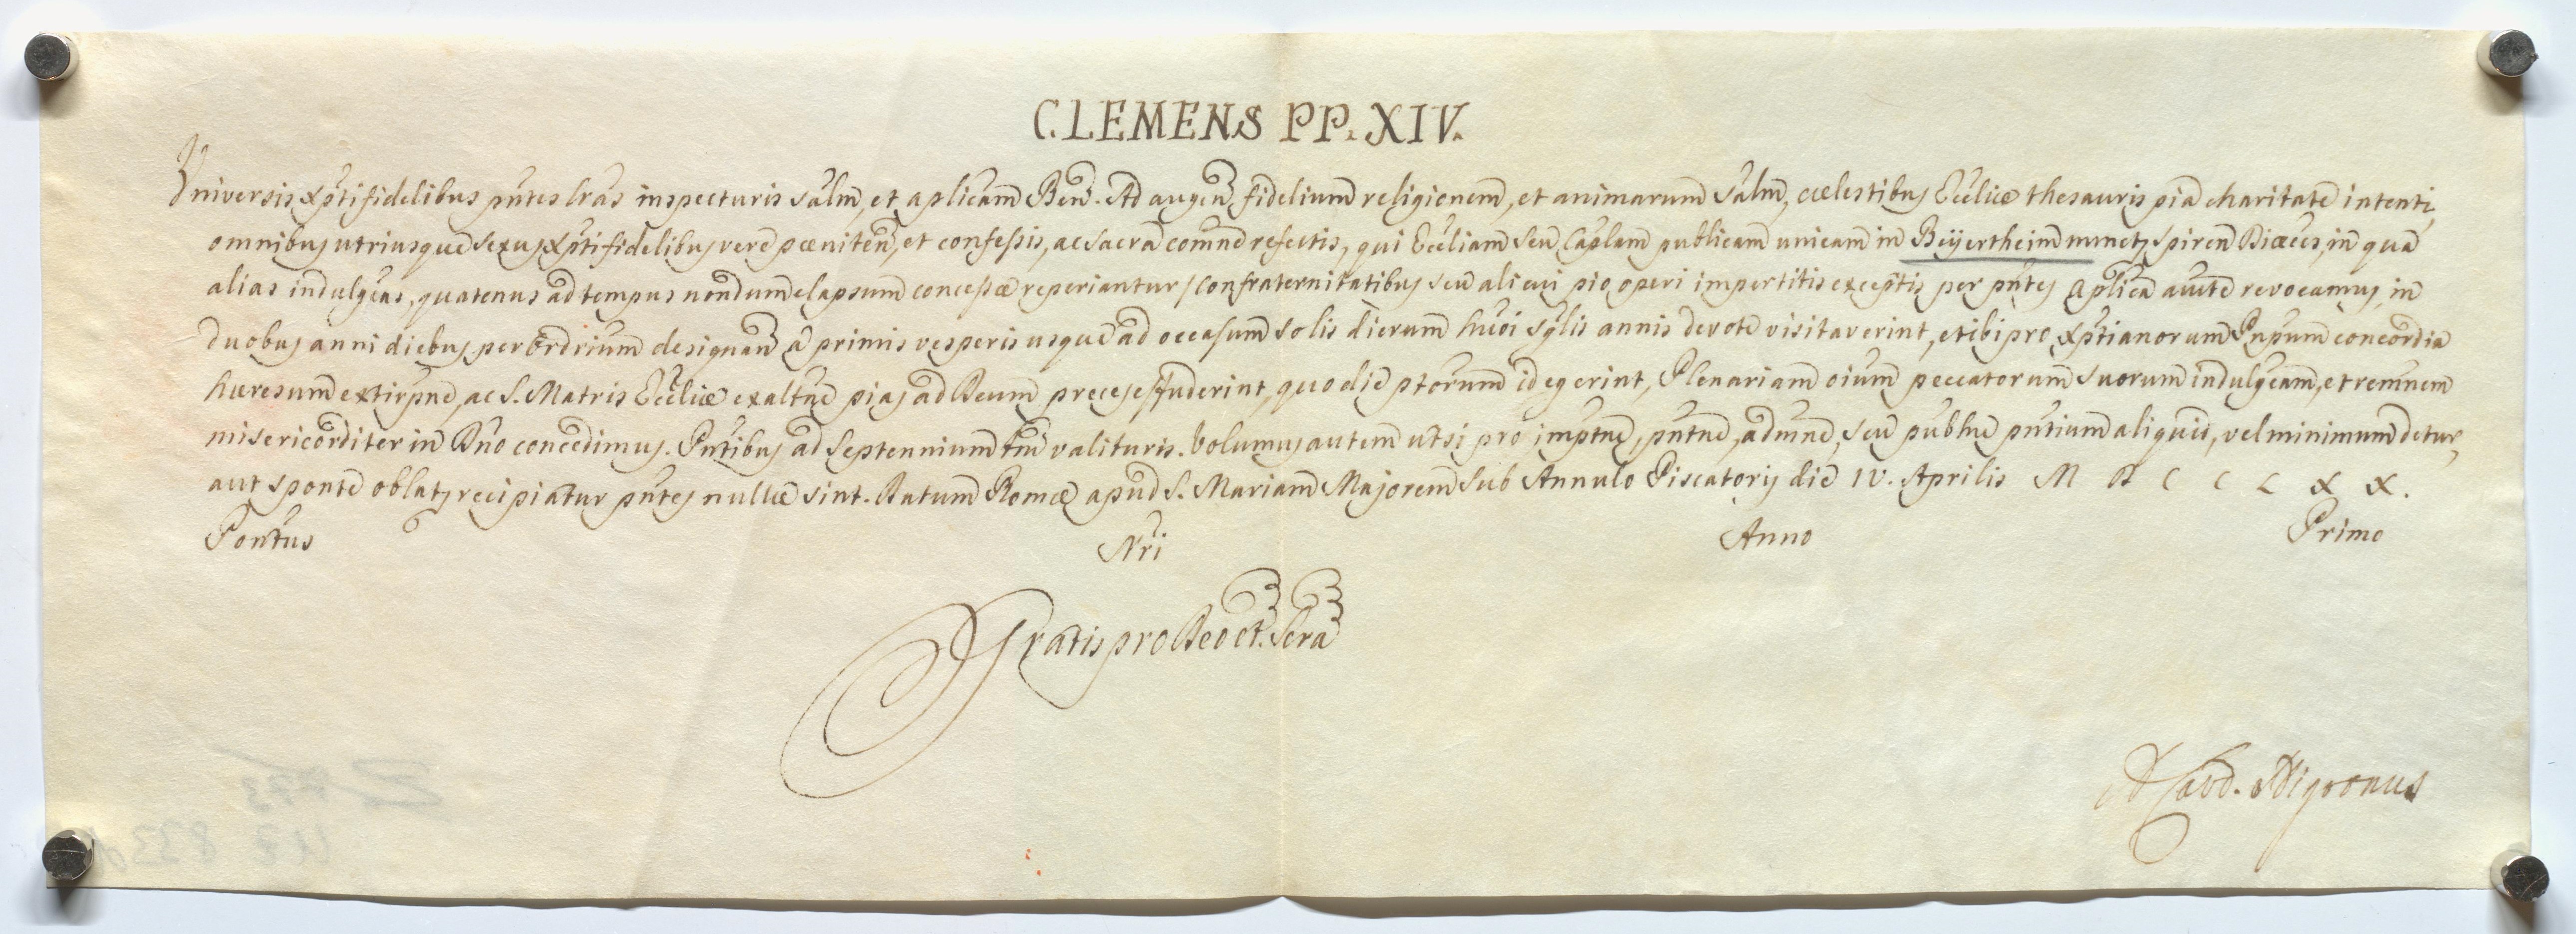 CLEMENS PP. XIV.
Universis Xptifidelibus pntes lras inspecturis salm, et aplicam Ben. Ad augen fidelium religionem, et animarum salm, cælestibus Ecclîæ thesauris pia charitate intenti,
omnibus utriusque sexus Xptifidelibus vere pœniten, et confessis, ac sacra comne refectis, qui Eccliam seu Caplam publicam unicam in Beÿertheim nunct, Spiren Diœces, in qua
alias indulgeas, quatenus ad tempus nondum elapsum concessæ reperiantur / Confraternitatibus seu alicui pio operi impertitis exceptis per pntes aplica aucte revocamus, in
duobus anni diebus per Ordrium designan a primis vesperis usque ad occasum solis dierum huoi sglis annis devote visitaverint, et ibi pro Xptianorum Pnpum concordia
hæresum extirpne, ac S. Matris Ecclîæ exaltne pias ad Deum preces effuderint, quo die ptorum id egerint, Plenariam oium peccatorum suorum indulgeam, et remnem
misericorditer in Dno concedimus. Pntibus ad Septennium tm valituris. Volumus autem ut si pro imptne, pntne, admne, seu publne pntium aliquid, vel minimum detur,
aut sponte oblat, recipiatur pntes nullæ sint. Datum Romæ apud S. Mariam Majorem Sub Annulo Piscatoris die IV. Aprilis M D C C L X X.
Pontus Nri Anno Primo
Gratis pro Deo et. Scra
A Card. Nigronus